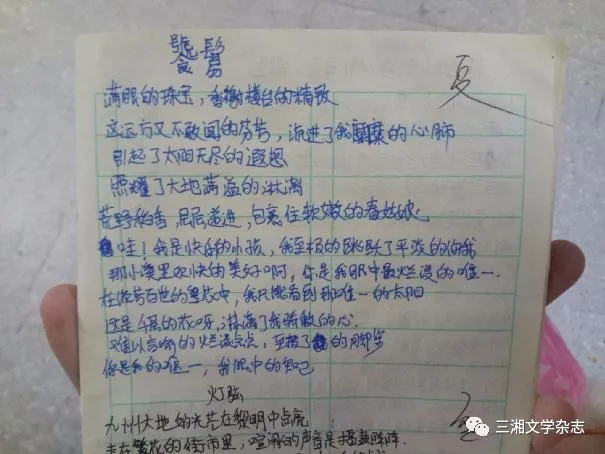 夏
满眼的珠宝，香榭楼台的精致
这远方又不敢闻的芬芳，流进了我的心肺
引起了太阳无尽的遐想
照耀了大地满溢的淋漓
荒野稻香，层层递进，包裹住软嫩的春姑娘
哇！我是快乐的小孩，我至极的跳跃了平淡的
那小溪里欢快的美好啊，你是我眼中最烂漫的唯一.
在流芳百世的繁花中，我只能看到那唯一的太阳
还是春的花呀，淋漓了我的心.
难以言喻的烂漫点点，的脚步
你是我的唯一，我眼中的知己
灯弦
九州大地的光芒在黎明中点亮
走在繁花的街市里，喧闹的声音是擂鼓阵阵.
三湘文学杂志